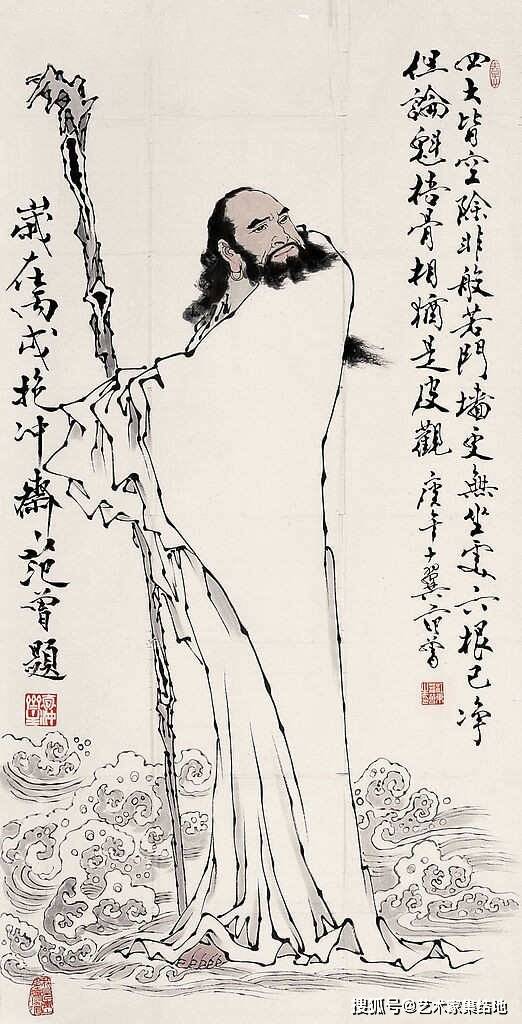 四大皆空除非般若門墻更無坐處六根已净
但論魁梧骨相猶是皮觀 庚午十翼范曾
歲在丙戌抱冲齋范曾題
搜狐号@艺术家集结地